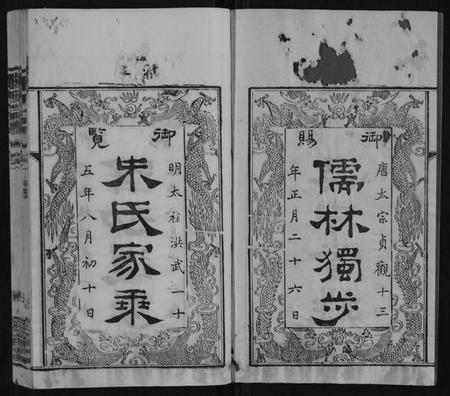 御賜
唐太宗貞觀十三
儒林獨步
年正月二十六日
御覽
明太祖洪武二十
朱氏家乘
五年八月初十日